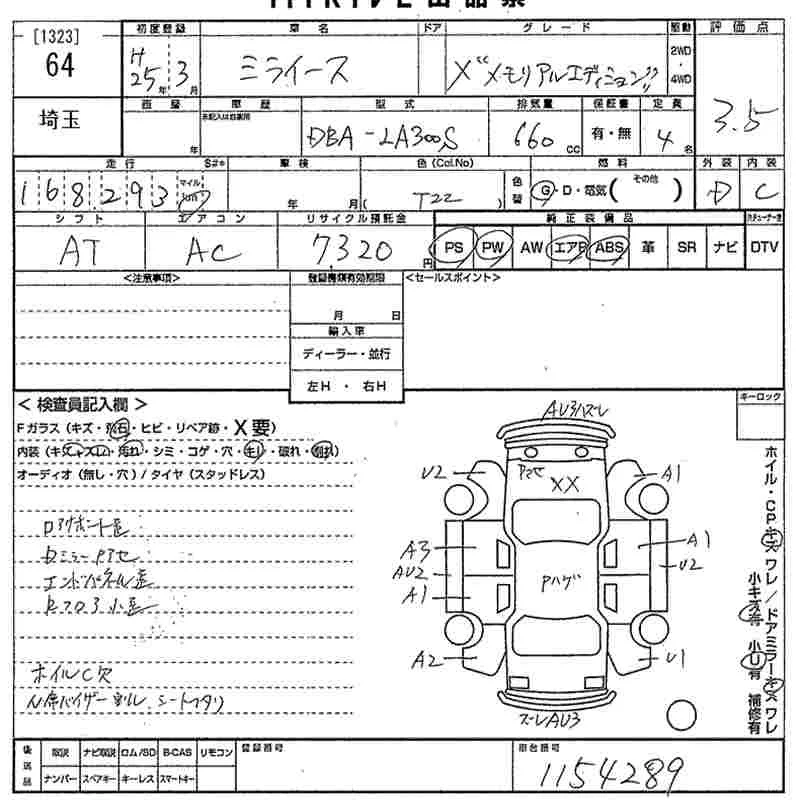 [1323]
64
埼玉
初度登録 車名 ドア グレード 駆動 評価点
H25年3月 ミライース X"メモリアルエディション" 2WD・4WD 3.5
車歴 型式 排気量 保証書 定員
年 未記入は自家用 DBA-LA300S 660cc 有・無 4名
走行 S#* 車検 色(Col.No) 燃料 外装 内装
168,293 マイル km 年 月( T22 ) 色替 G・D・電気( その他 ) D C
シフト エアコン リサイクル預託金 純正装備品
AT AC 7320円 PS PW AW エアB ABS 革 SR ナビ DTV
<注意事項> 登録書類有効期限 <セールスポイント>
月 日
輸入車
ディーラー・並行
左H ・ 右H
<検査員記入欄> キーロック
Fガラス(キズ・飛石・ヒビ・リペア跡・X要)
内装(キズ・スレ・汚れ・シミ・コゲ・穴・キレ・破れ・割れ)
オーディオ(無し・穴)/タイヤ(スタッドレス)
DミラーPアセ
ホイルC欠
シートヘタリ
AU3ハズレ
Pアセ
XX
U2 A1
A3 A1
AU2 U2
A1
Pハゲ
A2 U1
ズーレAU3
ホイル・CPキズワレ/ドアミラーキズワレ
小キズ有 小U有 補修有
後送品 取説 ナビ取説 ロム/SD B-CAS リモコン 登録番号 車台番号
ナンバー スペアキー キーレス スマートキー 1154289